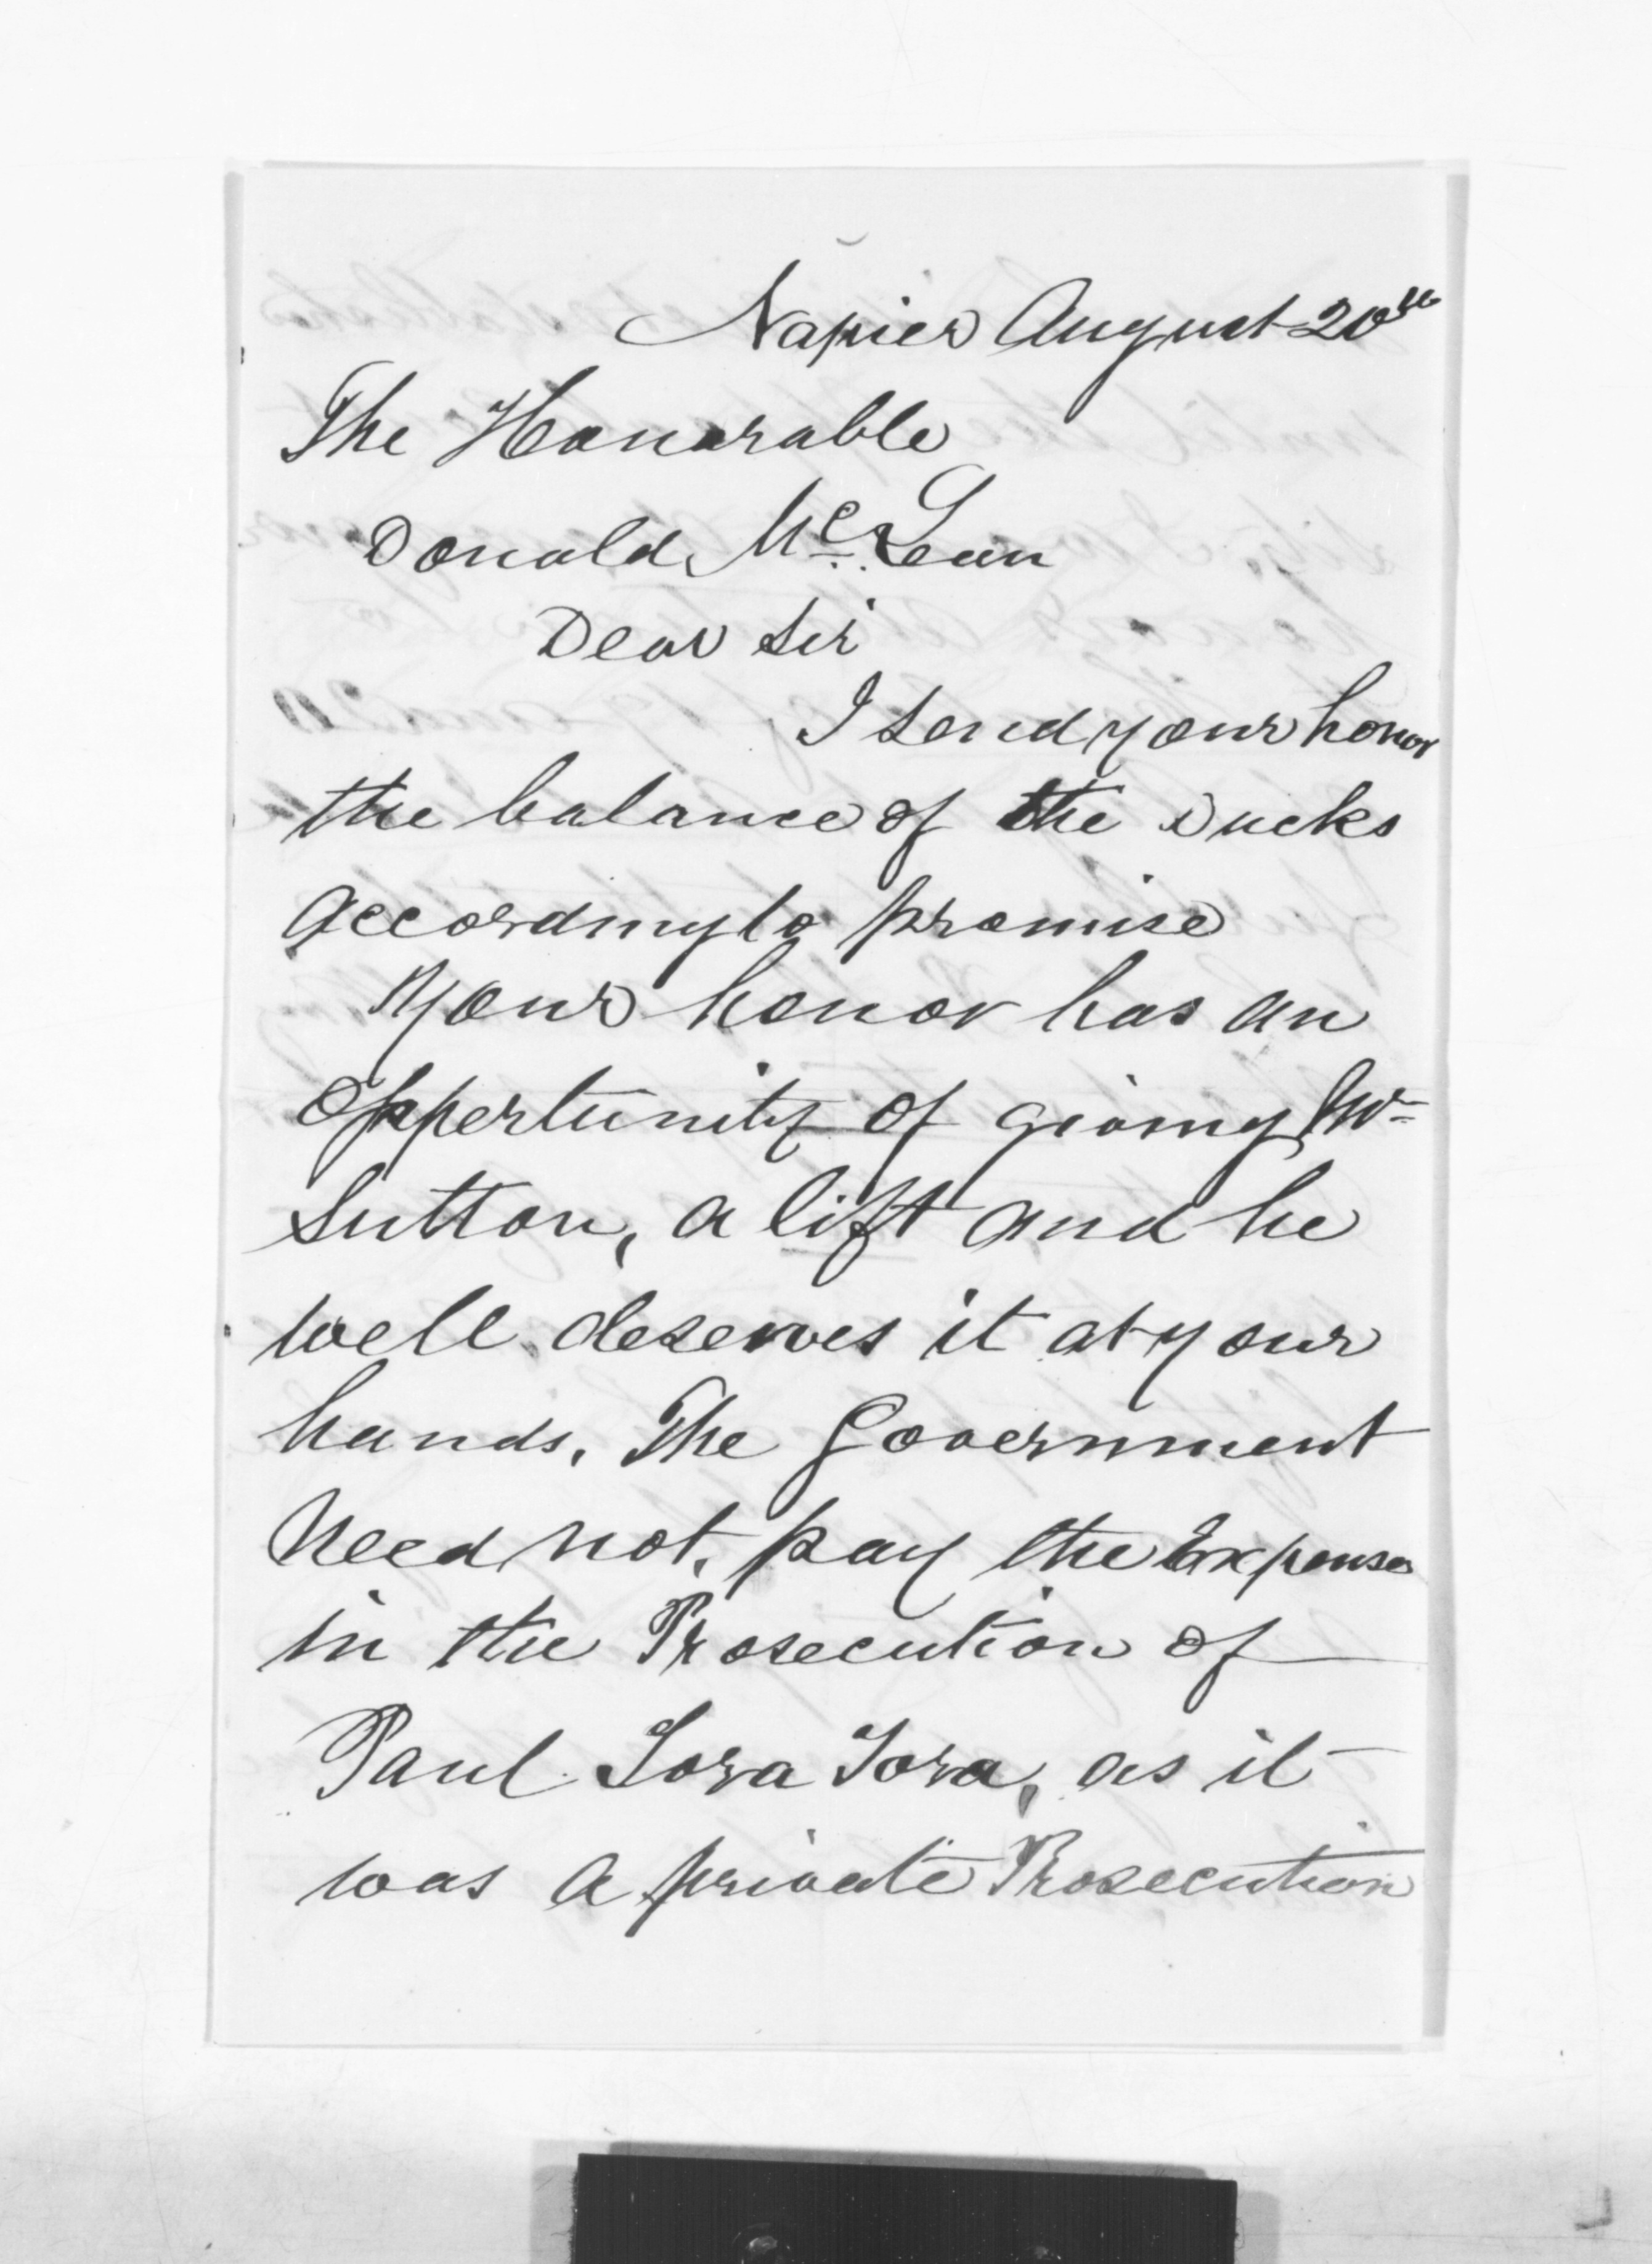 Napier August 20th
The Honorable
Donald McLean
Dear Sir
I send your honor
the balance of the Ducks
according to promise
Your honor has an
oppertunity of giving Mr
Sutton, a lift and he
well deserves it at your
hands, The Government
Need not, pay the Expense
in the Prosecution of
Paul Tora Tora, as it
was a private Prosecution